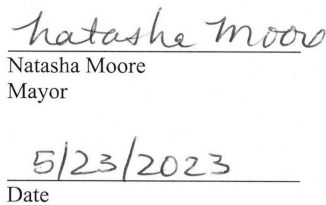 Natasha Moore
Natasha Moore
Mayor
5/23/2023
Date